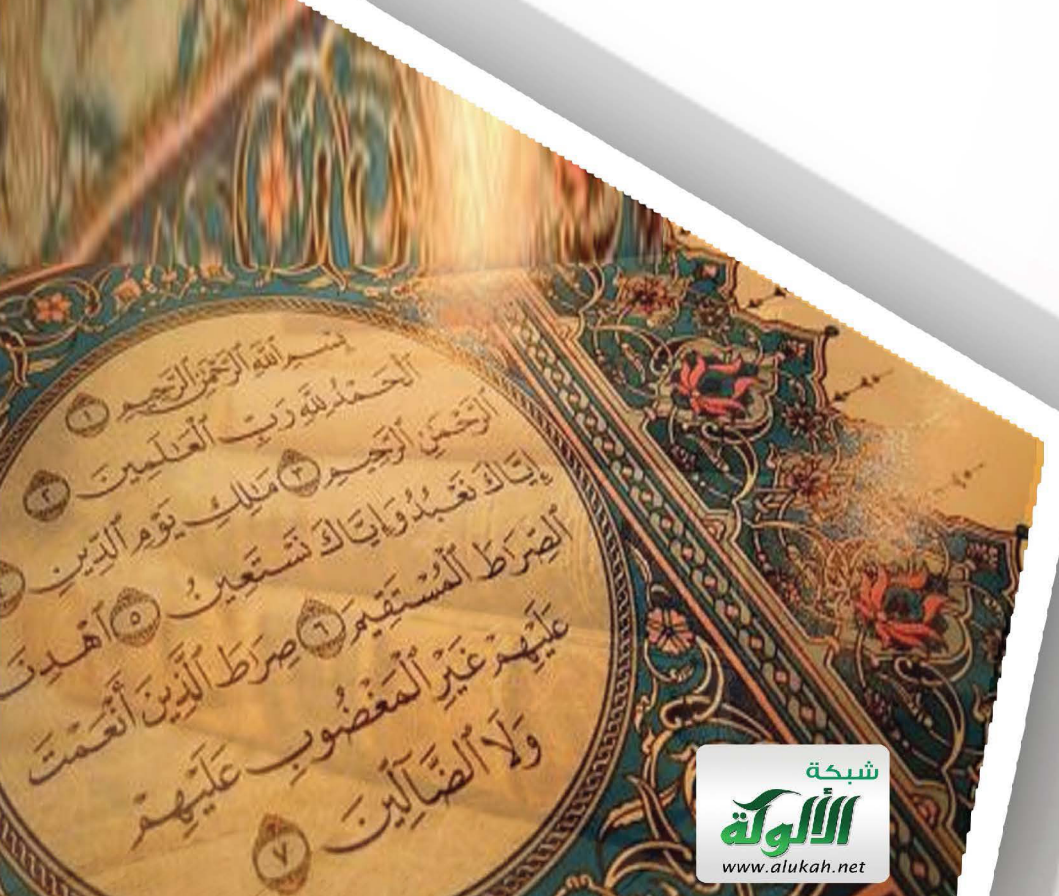 بِسْمِ ٱللَّهِ ٱلرَّحْمَٰنِ ٱلرَّحِيمِ ١
ٱلْحَمْدُ لِلَّهِ رَبِّ ٱلْعَٰلَمِينَ ٢
ٱلرَّحْمَٰنِ ٱلرَّحِيمِ ٣ مَٰلِكِ يَوْمِ ٱلدِّينِ ٤
إِيَّاكَ نَعْبُدُ وَإِيَّاكَ نَسْتَعِينُ ٥ ٱهْدِنَا
ٱلصِّرَٰطَ ٱلْمُسْتَقِيمَ ٦ صِرَٰطَ ٱلَّذِينَ أَنْعَمْتَ
عَلَيْهِمْ غَيْرِ ٱلْمَغْضُوبِ عَلَيْهِمْ
وَلَا ٱلضَّآلِّينَ ٧
شبكة
الألوكة
www.alukah.net